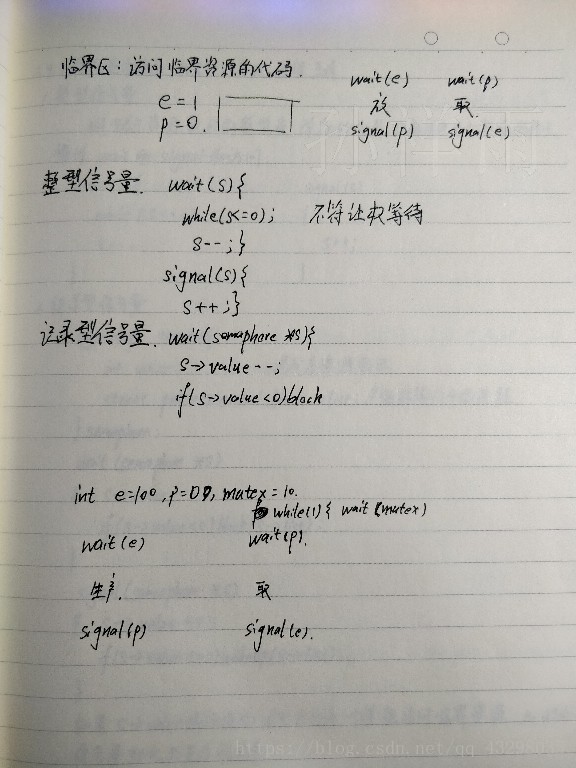 临界区：访问临界资源的代码.
e=1
p=0.
wait(e) wait(p)
放 取
signal(p) signal(e)
整型信号量. wait(S){
while(S<=0); 不符让权等待
S--;}
signal(S){
S++;}
记录型信号量. wait(semaphore *S){
S→value--;
if(S→value<0)block
int e=100, p=0, mutex=10.
while(1){ wait(mutex)
wait(e) wait(p).
生产. 取
signal(p) signal(e).
https://blog.csdn.net/qq_43298